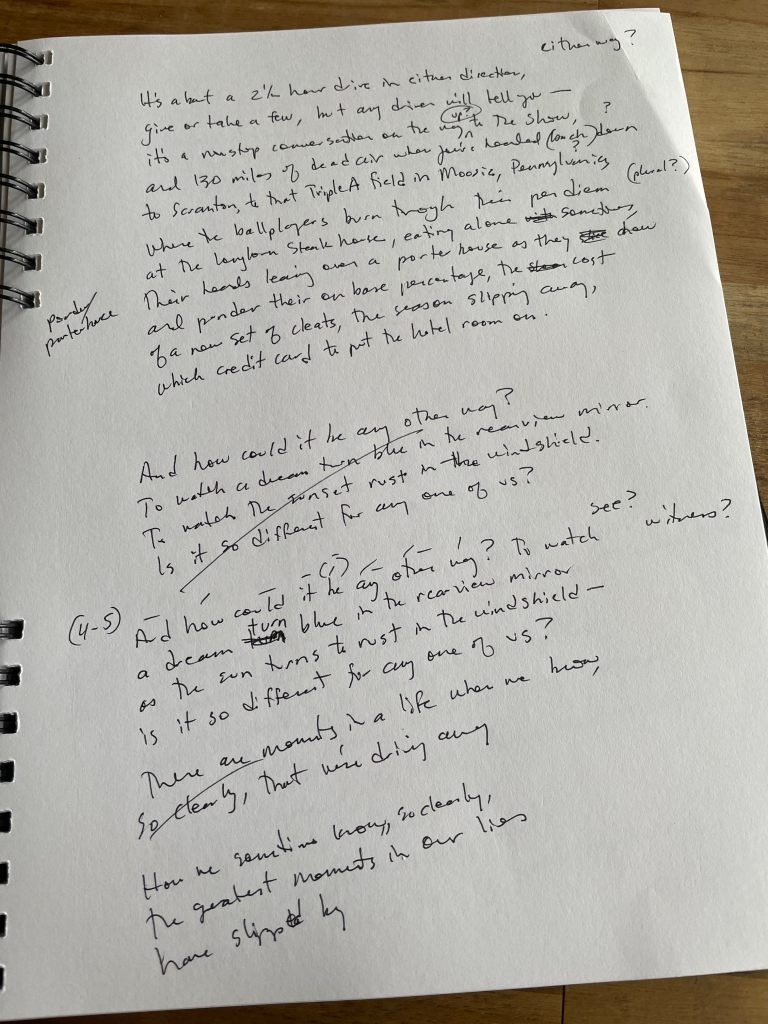 either way?
It's about a 2 1/2 hour drive in either direction,
give or take a few, but any driver will tell you —
it's a nonstop conversation on the way up? to The Show,
and 130 miles of dead air when you're headed (back) down
?
to Scranton, to that Triple A field in Moosic, Pennsylvania,
?
where the ballplayers burn through their per diem (plural?)
at the Longhorn Steakhouse, eating alone with sometimes,
Their heads leaning over a porterhouse as they chew
and ponder their on base percentage, the cost
ponder/
porterhouse
of a new set of cleats, the season slipping away,
which credit card to put the hotel room on.
And how could it be any other way?
To watch a dream turn blue in the rearview mirror.
To watch the sunset rust in the windshield.
Is it so different for any one of us?
see?
witness?
(4-5)
And how could it be any other way? To watch
a dream turn blue in the rearview mirror
as the sun turns to rust in the windshield —
is it so different for any one of us?
There are moments in a life when we know,
so clearly, that we're driving away
How we sometimes know, so clearly,
the greatest moments in our lives
have slipped by